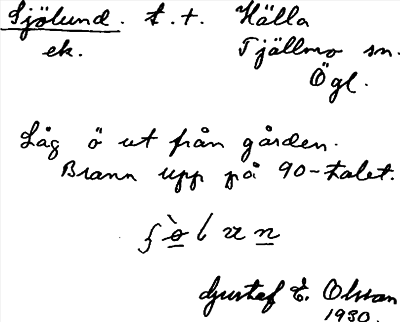 Sjölund. t. t. Hälla
ek. Tjällmo sn.
Ögl.
Låg ö ut från gården.
Brann upp på 90-talet.
Gustaf E. Olsson
1930.